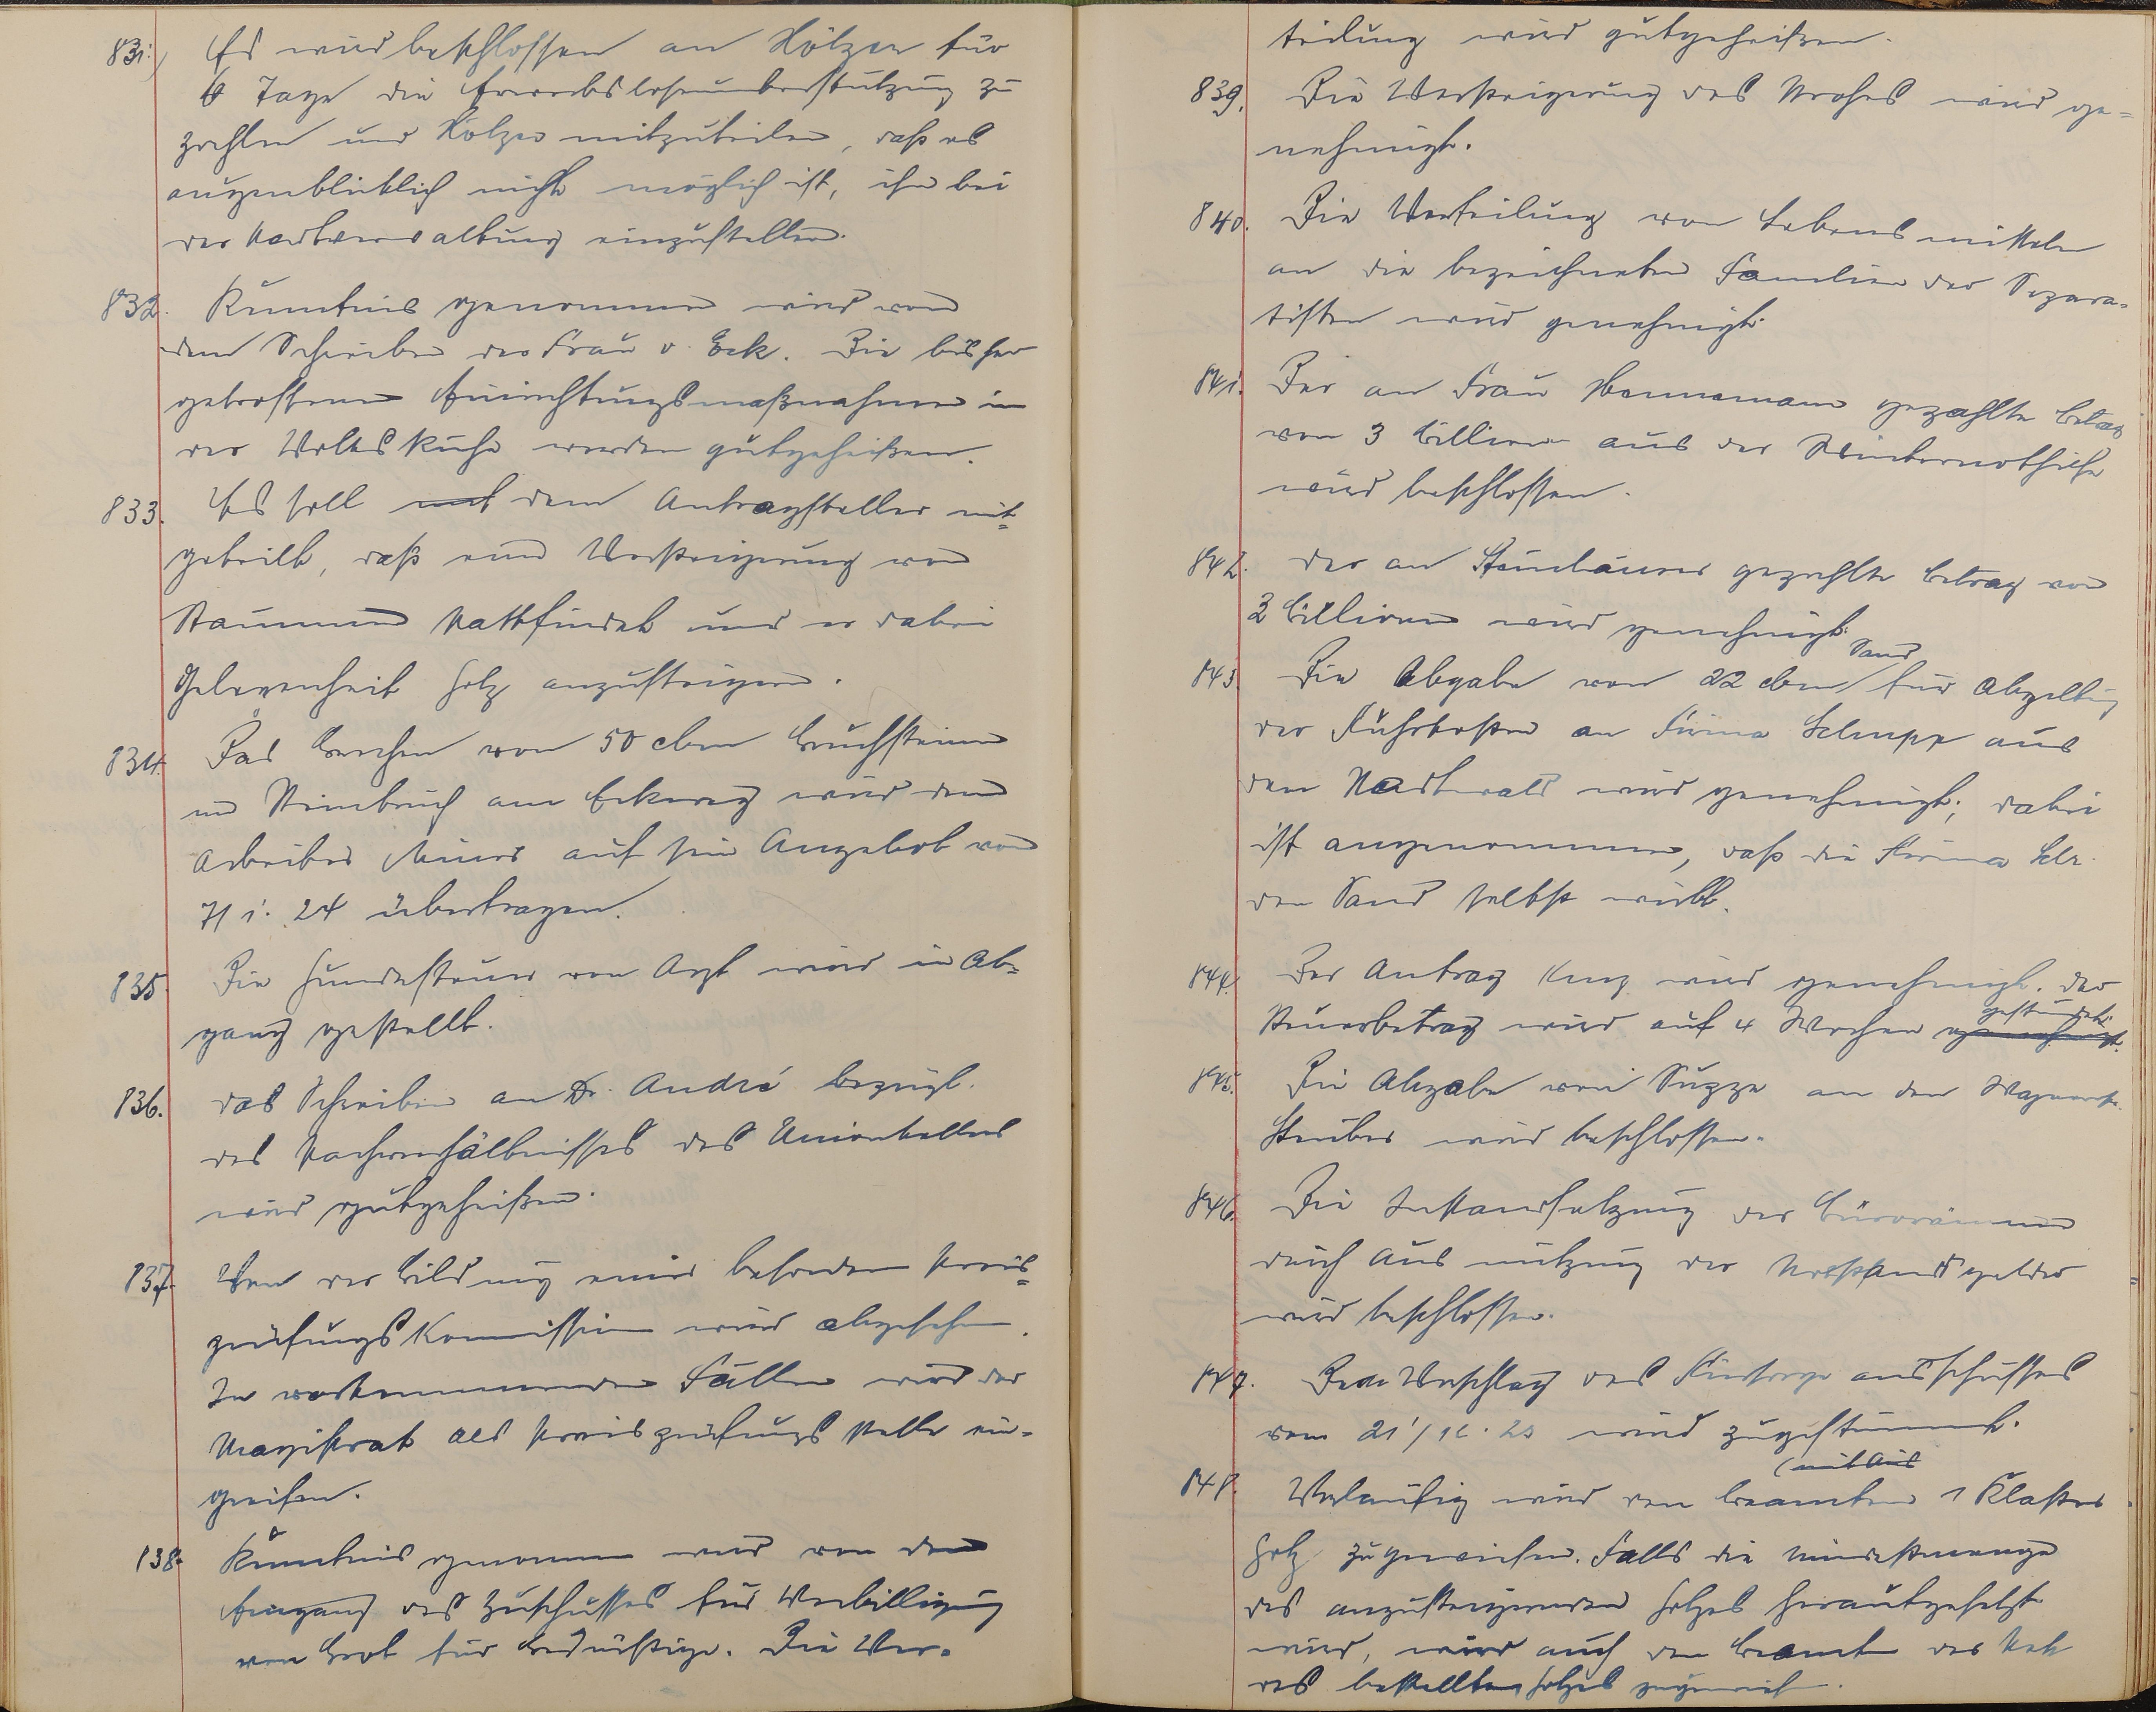 831.) Es wird beschlossen an Hölzer für
6 Tage die Erwerbslosenunterstützung zu
zahlen und Hölzer mitzuteilen, daß es
augenblicklich nicht möglich ist, ihn bei
der Stadtverwaltung einzustellen.
832. Kenntnis genommen wird von
dem Schreiben der Frau v. Eck. Die bisher
getroffenen Einrichtungsmaßnahmen in
der Volksküche werden gutgeheißen.
833. Es soll mit dem Antragsteller mit=
geteilt, daß eine Versteigerung von
Stämmen stattfindet und er dabei
Gelegenheit Holz anzusteigern.
834. Das Brechen von 50 cbm Bruchsteinen
im Steinbruch am Eckweg wird dem
Arbeiter auf sein Angebot vom
7/1. 24 übertragen.
835. Die Hundesteuer von Arzt wird in Ab=
gang gestellt.
836. Das Schreiben an Dr. André bezügl.
des Pachtverhältnisses des Unionkellers
wird gutgeheißen.
837. Von der Bildung einer besonderen Preis=
prüfungskommission wird abgesehen.
In vorkommenden Fällen wird der
Magistrat als Preisprüfungsstelle ein=
greifen.
838. Kenntnis genommen wird von dem
Eingang des Zuschusses für Verbilligung
von Brot für Bedürftige. Die Ver=
teilung wird gutgeheißen.
839. Die Versteigerung des Strohes wird ge=
nehmigt.
840. Die Verteilung von Lebensmitteln
an die bezeichneten Familien der Separa=
tisten wird genehmigt.
841. Der an Frau Hannemann gezahlte Betrag
von 3 Billionen aus der Winternothilfe
wird beschlossen.
842. Der an gezahlte Betrag von
3 Billionen wird genehmigt.
843. Die Abgabe von 22 cbm Sand für Abgeltung
der Fuhrkosten an Firma Schupp aus
dem Stadtwald wird genehmigt; dabei
ist angenommen, daß die Firma Sch.
den Sand selbst
844. Der Antrag Kunz wird genehmigt. Der
Steuerbetrag wird auf 4 Wochen genehmigt. gestundet.
845. Die Abgabe von Suppe an den
Steuber wird beschlossen.
846. Die Instandsetzung der Büroräume
durch Ausnutzung der Notstandsgelder
wird beschlossen.
847. Dem Vorschlag des Fürsorgeausschusses
vom 21/12. 23 wird zugestimmt.
(mit Aus
848. Vorläufig wird den Beamten 1 Klafter
Holz zugewiesen. Falls die Mindestmenge
des anzusteigernden Holzes heraufgesetzt
wird, wird auch den Beamten der Rest
des bestellten Holzes